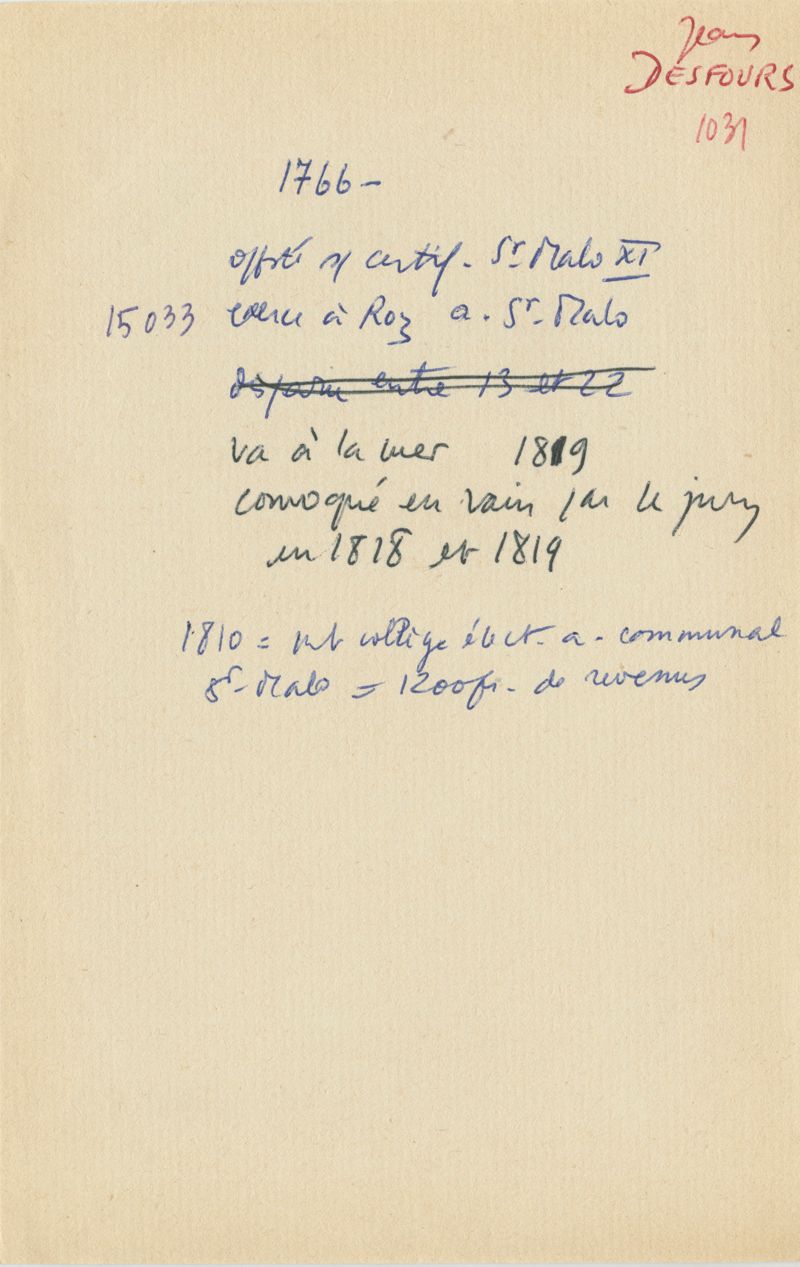 Jean
DESFOURS
1031
1766 –
offsté s/ certif. St. Malo XI
15033 exerce à Roz a. St. Malo
disparu entre 13 et 22
va à la mer 1819
convoqué en vain par le jury
en 1818 et 1819
1810 = collège élect. a. communal
St. Malo = 1200 fr. de revenus